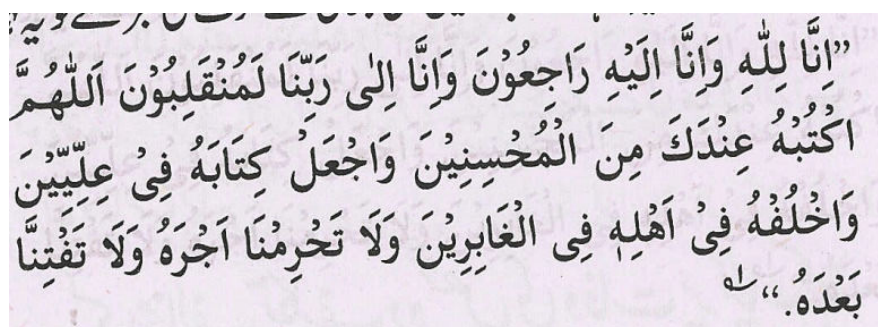 ”اِنَّا لِلّٰهِ وَاِنَّا اِلَيْهِ رَاجِعُوْنَ وَاِنَّا اِلٰى رَبِّنَا لَمُنْقَلِبُوْنَ اَللّٰهُمَّ
اكْتُبْهُ عِنْدَكَ مِنَ الْمُحْسِنِيْنَ وَاجْعَلْ كِتَابَهُ فِىْ عِلِّيِّيْنَ
وَاخْلُفْهُ فِىْ اَهْلِهٖ فِى الْغَابِرِيْنَ وَلَا تَحْرِمْنَا اَجْرَهُ وَلَا تَفْتِنَّا
بَعْدَهُ.“ ؂۱